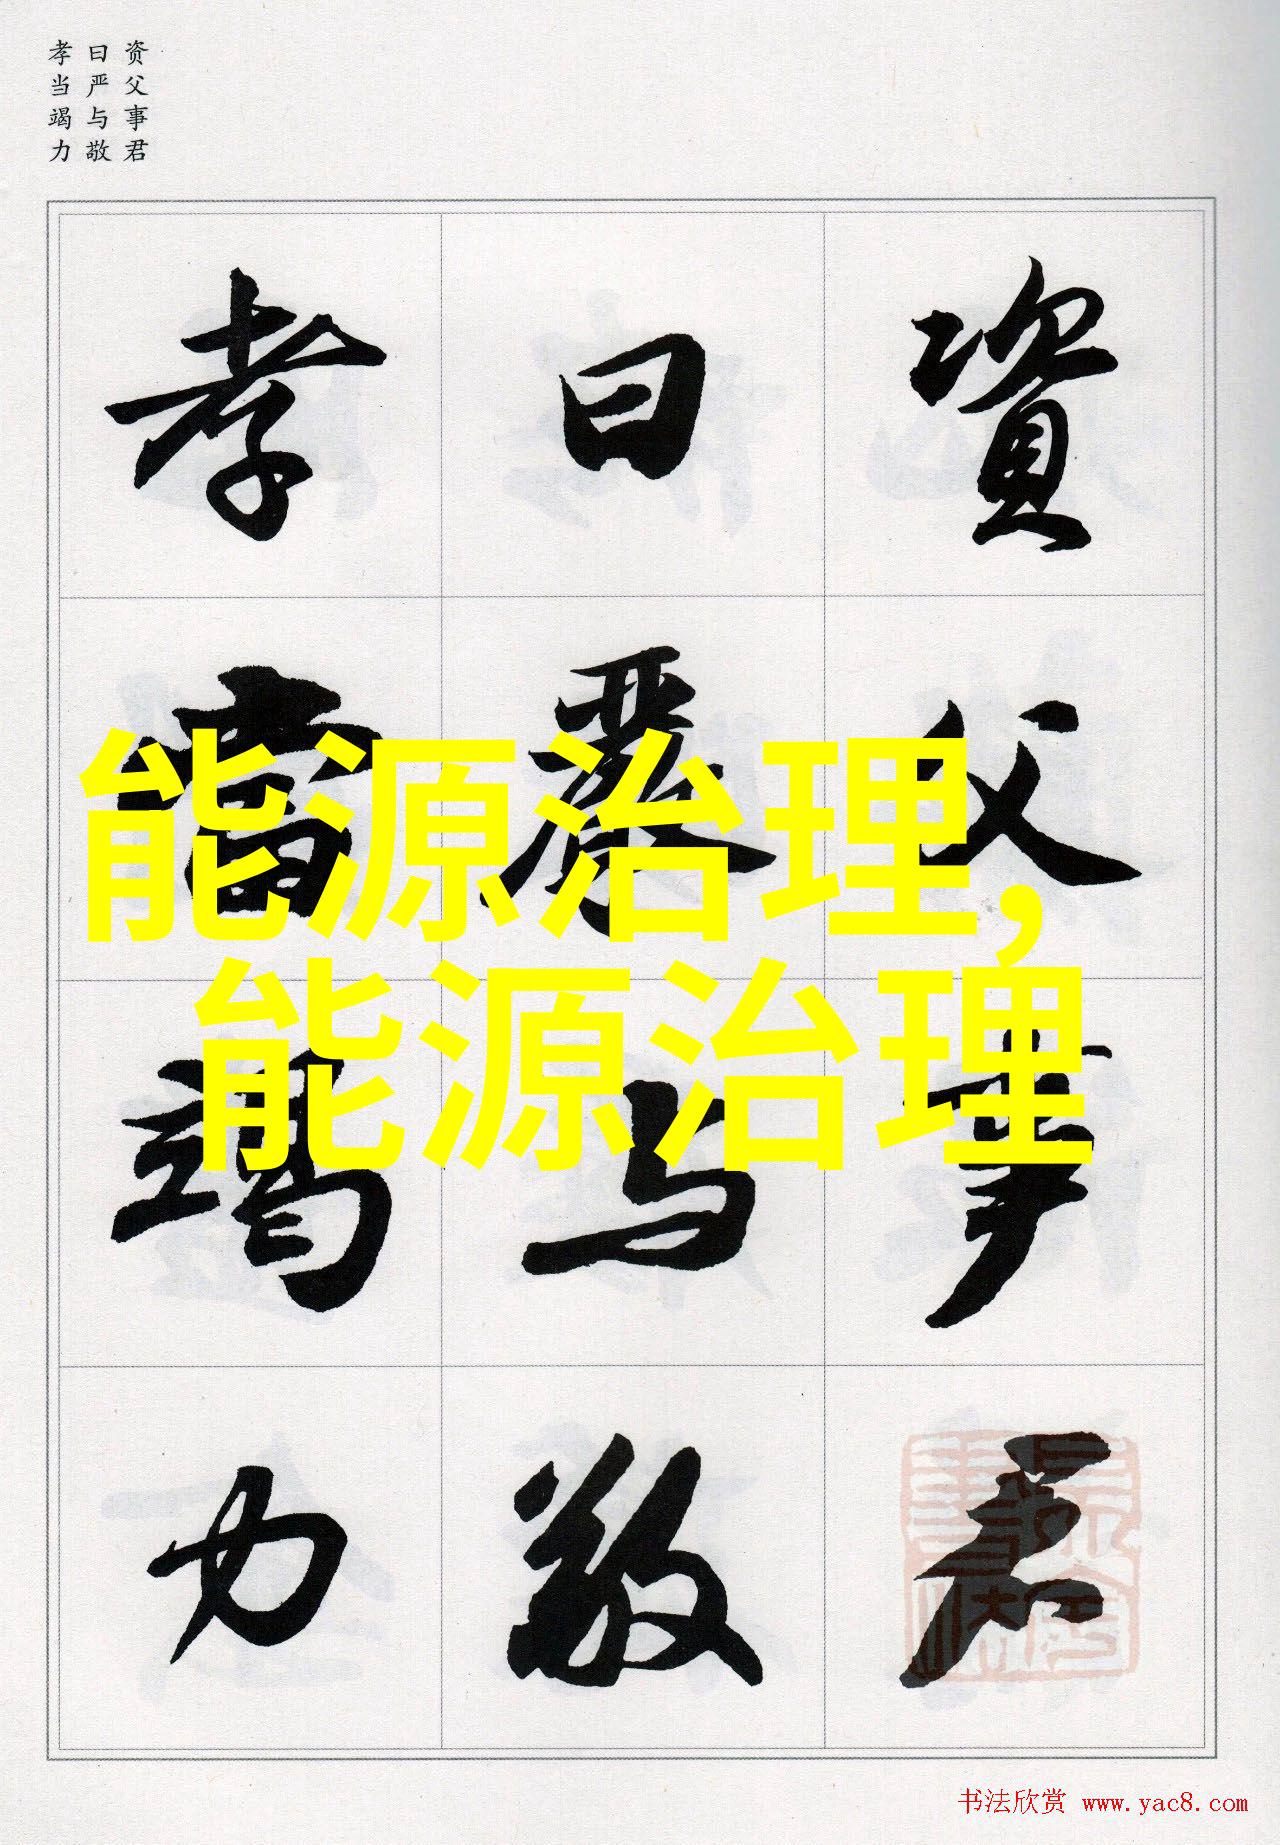 资父事君
曰严与敬
孝当竭力
資父事君
曰嚴与敬
孝當竭力
能源治理,
能源治理
书法欣赏 www.yac8.com